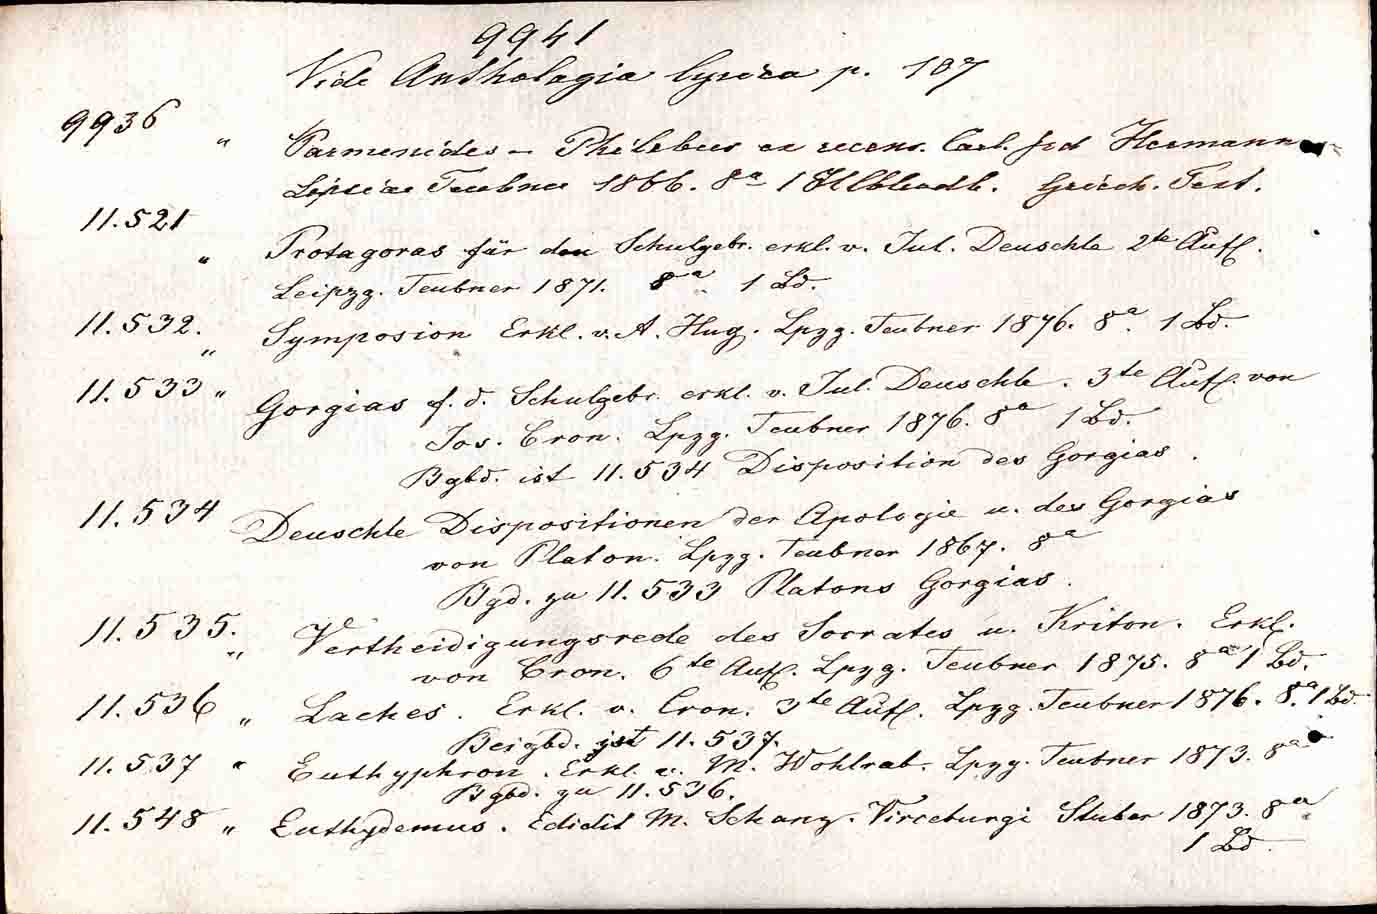 9941
Vide Anthologia lyrica p. 107
9936 " Parmenides - Philebus ex recens. Car. frd Hermann
Lipsiae Teubner 1866. 8a 1 Griech. Text.
11.521
" Protagoras für den Schulgebr. erkl. v. Jul. Deuschle 2te Aufl.
Leipzg. Teubner 1871. 8a 1 Bd.
11.532. " Symposion Erkl. v. A. Hug. Lpzg. Teubner 1876. 8a 1 Bd.
11.533 " Gorgias f. d. Schulgebr. erkl. v. Jul. Deuschle. 3te Aufl. von
Jos. Cron. Lpzg. Teubner 1876. 8a 1 Bd.
Bgbd. ist 11.534 Disposition des Gorgias.
11.534 Deuschle Dispositionen der Apologie u. des Gorgias
von Platon. Lpzg. Teubner 1867. 8a
Bgd. zu 11.533 Platons Gorgias.
11.535. " Vertheidigungsrede des Socrates u. Kriton. Erkl.
von Cron. 6te Aufl. Lpzg. Teubner 1875. 8a 1 Bd.
11.536 " Laches. Erkl. v. Cron. 3te Aufl. Lpzg. Teubner 1876. 8a 1 Bd.
Beigbd. ist 11.537.
11.537 " Euthyphron. Erkl. v. M. Wohlrab. Lpzg. Teubner 1873. 8a
Bgbd. zu 11.536.
11.548 " Euthydemus. Edidit M. Schanz. Virceburgi Stuber 1873. 8a
1 Bd.